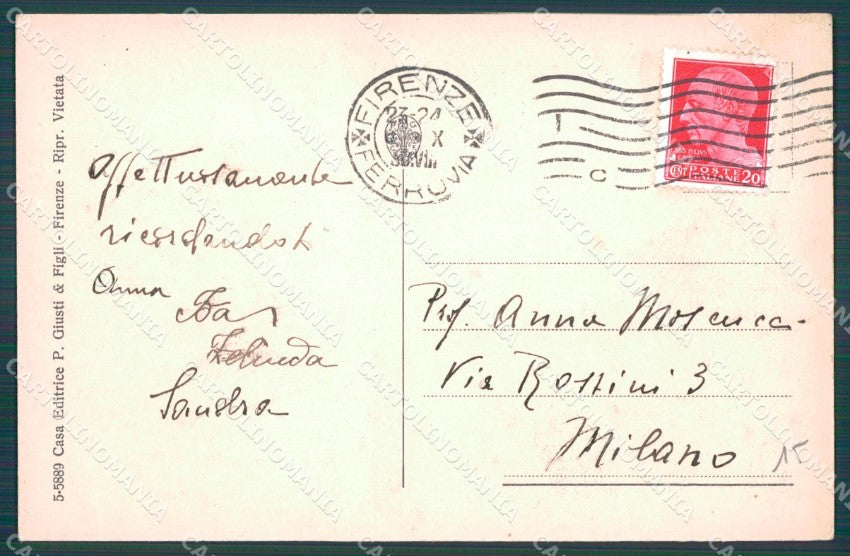 5-5889 Casa Editrice P. Giusti & Figli - Firenze - Ripr. Vietata
FIRENZE
23-24
X
XVIII
FERROVIA
1
C
CENT POSTE ITALIANE 20
Affettuosamente
ricordandoti
Anna
Zelinda
Sandra
Prof. Anna
Via Rossini 3
Milano
15
CARTOLINOMANIA